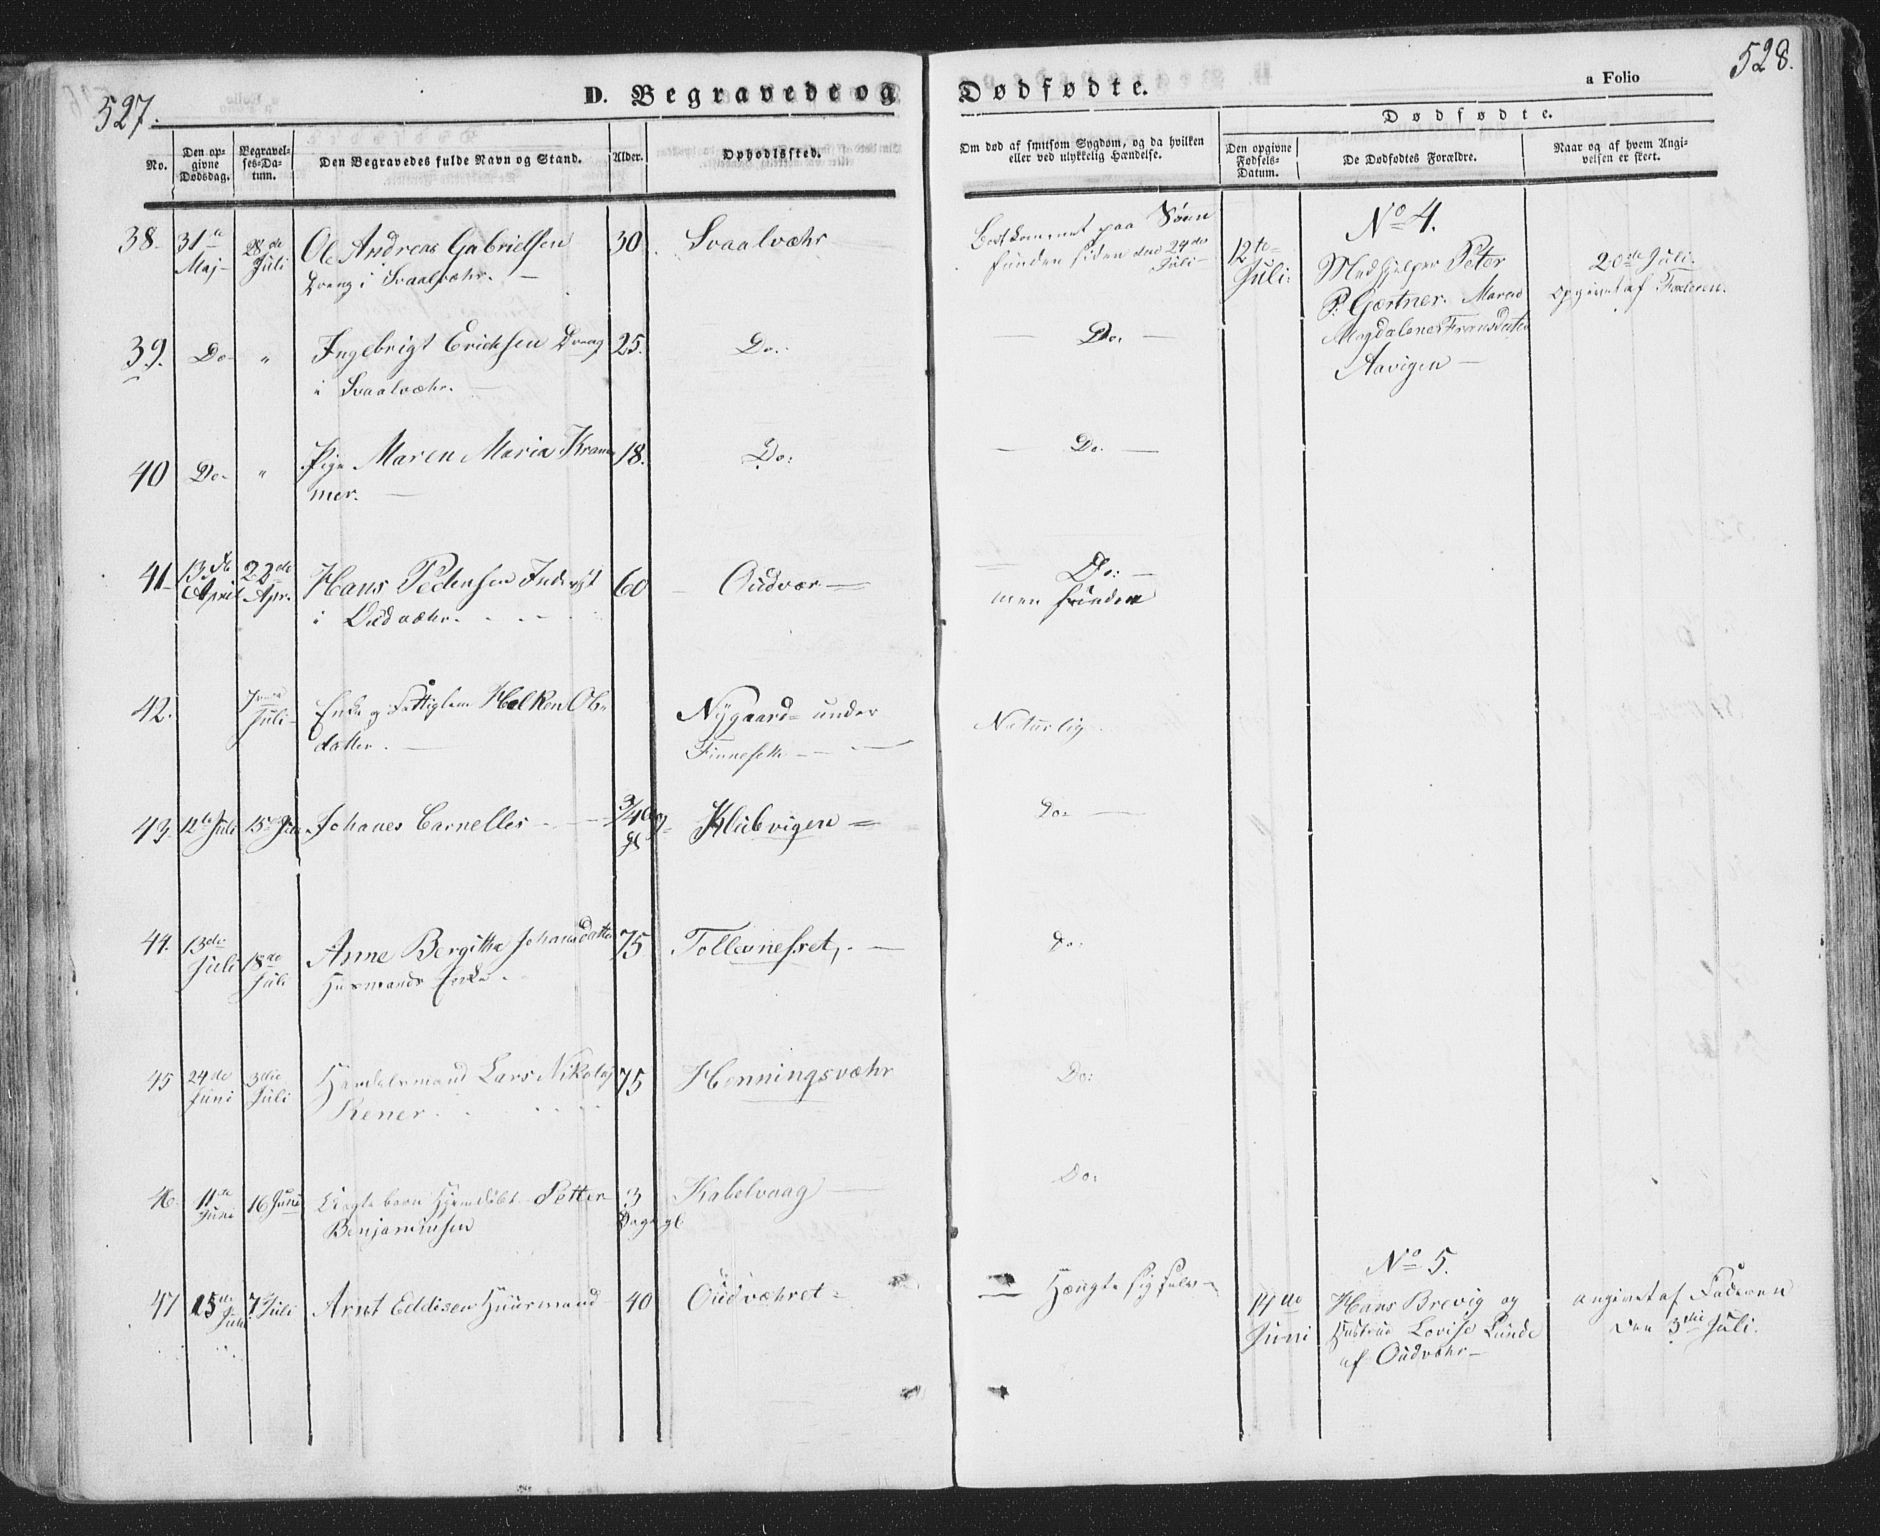 527.
D. Begravede og
Dødfødte.
a Folio
528.
No.
Den op-
givne
Dødsdag.
Begravel-
ses-Da-
tum.
Den Begravedes fulde Navn og Stand.
Alder.
Opholdssted.
Om død af smitsom Sygdom, og da hvilken
eller ved ulykkelig Hændelse.
Dødfødte.
Den opgivne
Fødsels-
Datum.
De Dødfødtes Forældre.
Naar og af hvem Angi-
velsen er skeet.
38. 31te Maj 28de Juli Ole Andreas Gabrielsen 30. Svaalvæhr
Dreng i Svaalvæhr.
Bortkommet paa Søen
funden siden den 24de Juli
12te Juli.
No 4.
Medhjelper Peter
P. Gærtner. Maren
Magdalene Fransdatter
Aavigen
20de Juli.
opgivet af Faderen.
39. Do " Ingebrigt Erichsen Dreng 25. Do. Do.
i Svaalvæhr.
40 Do " Pige Maren Maria Kram- 18. Do: Do.
mer.
41 13de April 22de Apr. Hans Pedersen Inderst 60 Oudvær Do:
i Oudvæhr. men funden
42. Juli Enke og Fattiglem Ols- Nygaard under Naturlig
datter. Finnesett
43. 12te Juli 15 Juli Johanes Carnelles 3/4 Klubvigen Do.
44. 13de Juli 18de Juli Anne Bergitha Johansdatter 75 Do:
Husmands Enke.
45 24de Juni 3die Juli Handelsmand Lars Nikolaj 75 Henningsvæhr Do:
Rener
46. 11te Juni 16 Juni Ægte barn Hjemdøbt Petter 3 Kabelvaag Do.
Benjaminsen Dage gl
47 15de 7de Juli Arnt Eddisen Huusmand 40 Oudvæhret
Hængte sig selv
14de Juni
No 5.
Hans Brevig og
Hustrue Lovise Lunde
af Oudvæhr
angivet af Faderen
den 3die Juli.